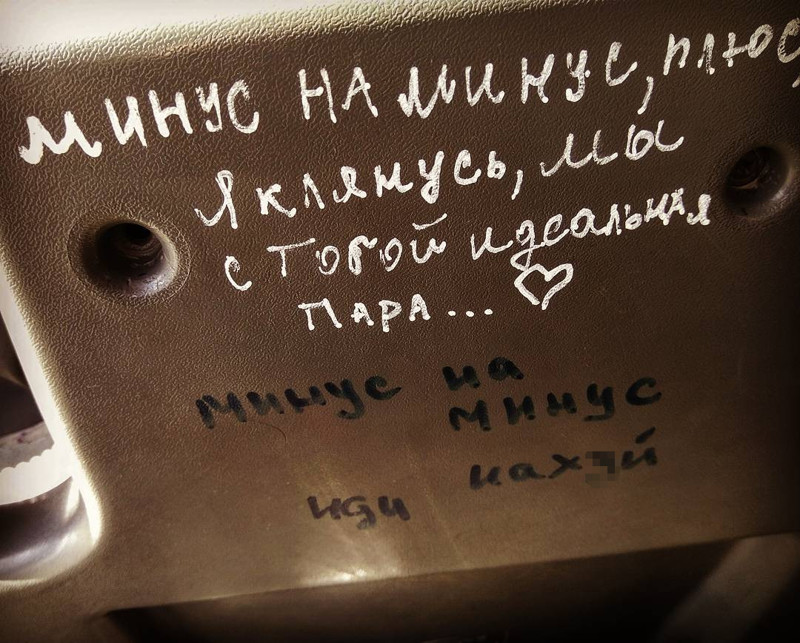 минус на минус, плюс,
Я клянусь, мы
с тобой идеальная
пара... ♡
минус на
минус
иди